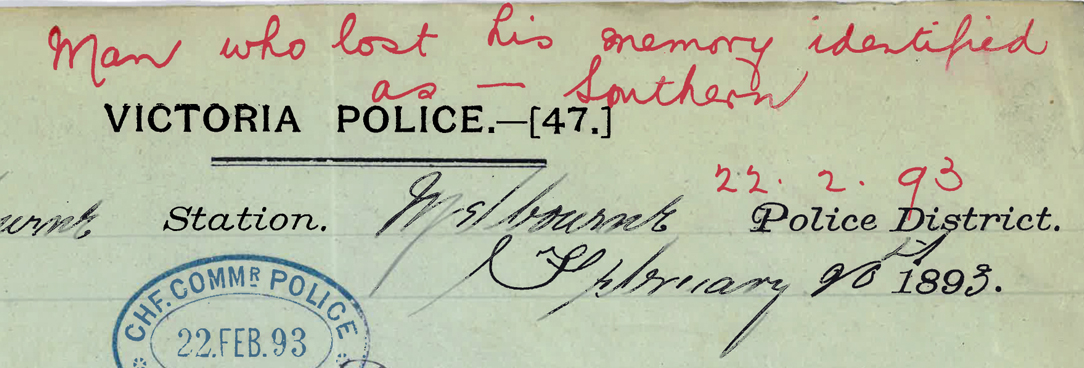 Man who lost his memory identified
as — Southern
VICTORIA POLICE.—[47.]
22. 2. 93
Station. Melbourne Police District.
February 1893.
CHF. COMMR POLICE
22.FEB.93